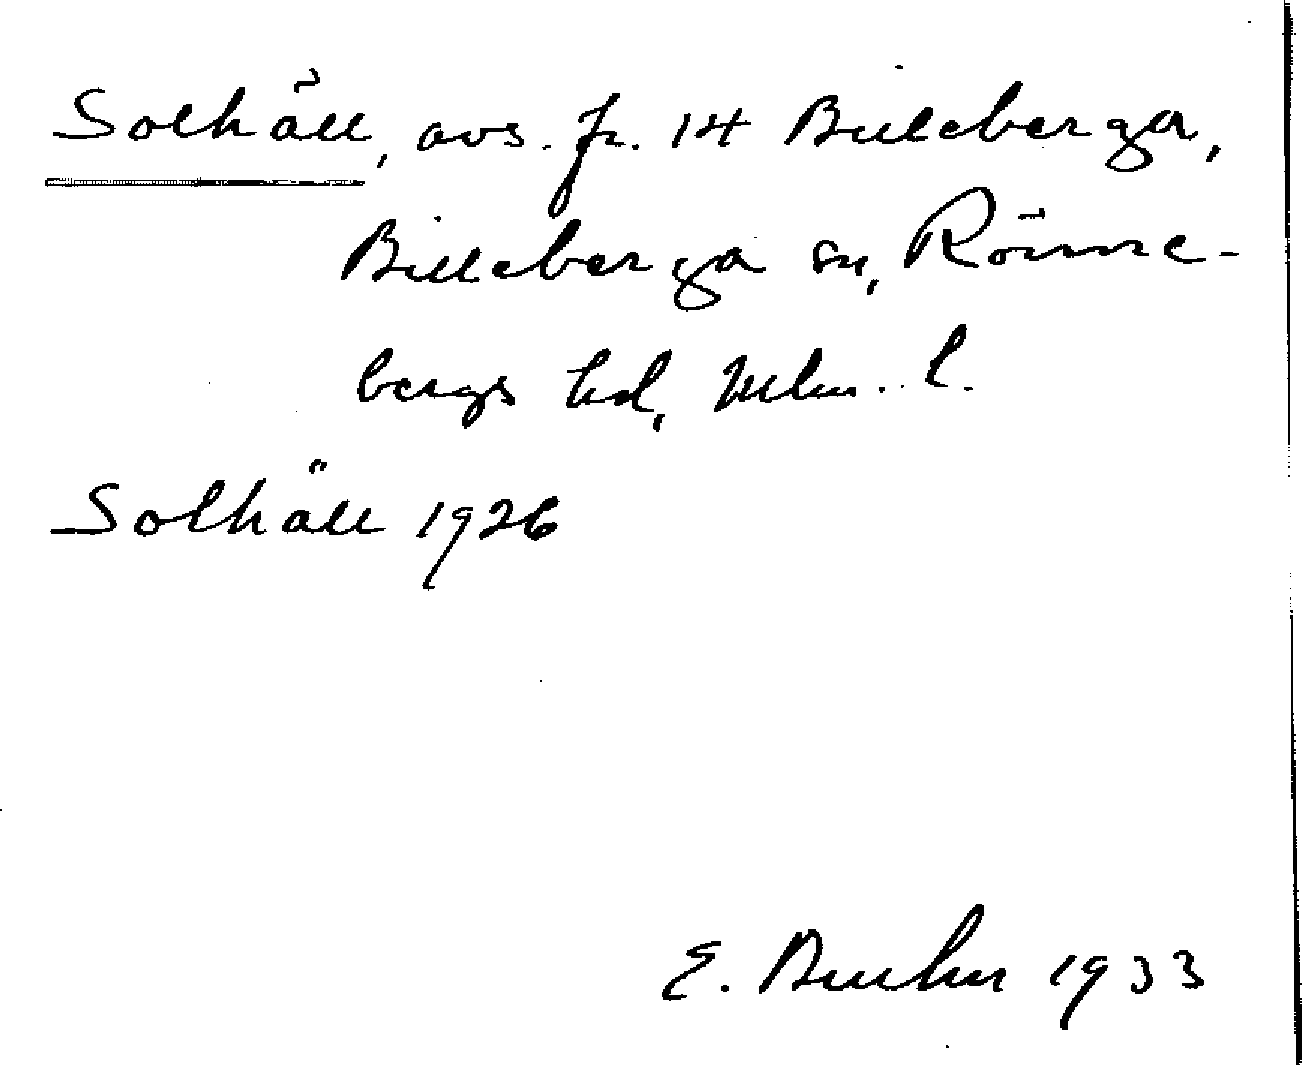 Solhäll, avs. fr. 14 Billeberga,
Billeberga sn, Rönne-
bergs hd, Mlm. l.
Solhäll 1926
E. Bruhn 1933